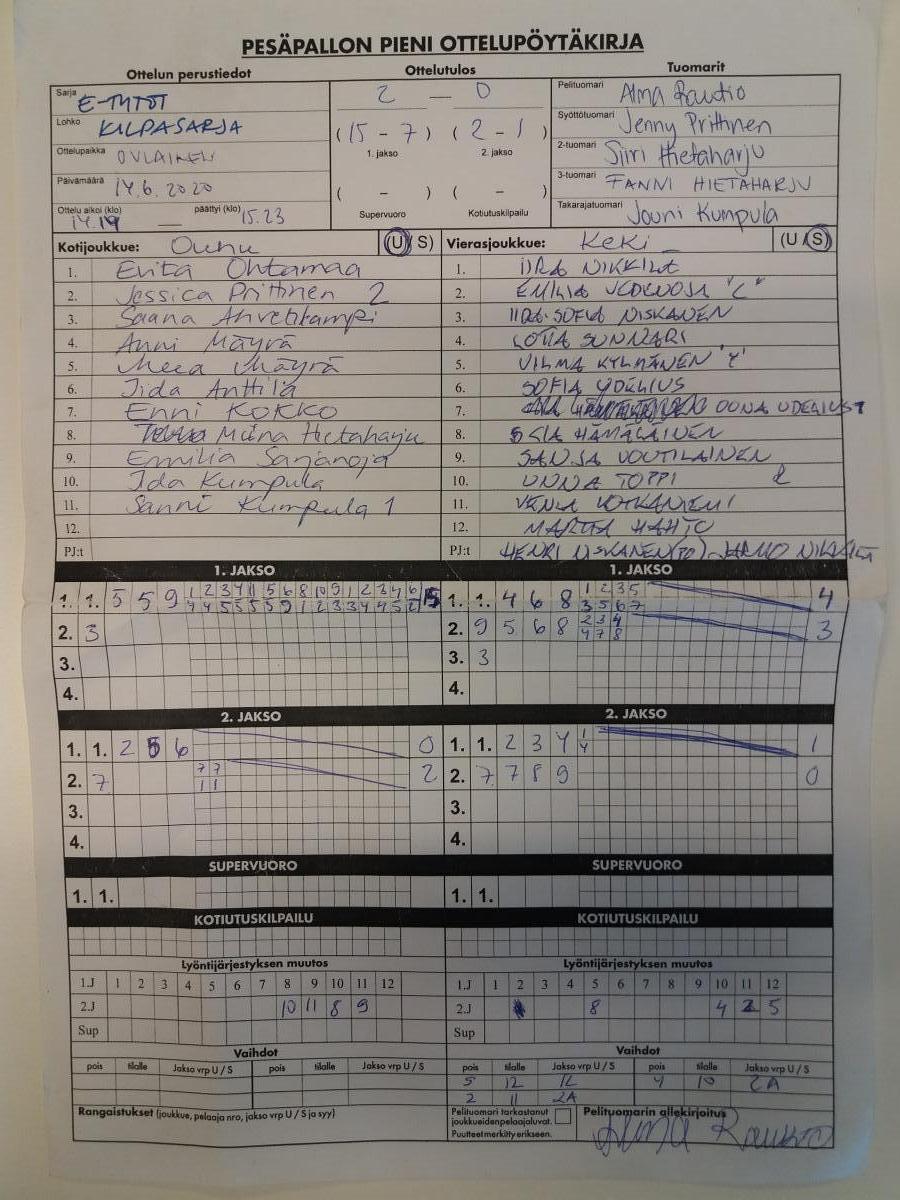 PESÄPALLON PIENI OTTELUPÖYTÄKIRJA
Ottelun perustiedot Ottelutulos Tuomarit
Sarja E-TYTÖT 2 — 0 Pelituomari Alma Rautio
Lohko KILPASARJA (15 - 7) (2 - 1) Syöttötuomari Jenny Prittinen
1. jakso 2. jakso
Ottelupaikka OULAINEN 2-tuomari Siiri Hietaharju
Päivämäärä 14.6.2020 ( - ) ( - ) 3-tuomari FANNI HIETAHARJU
Ottelu alkoi (klo) 14.19 — päättyi (klo) 15.23 Supervuoro Kotiutuskilpailu Takarajatuomari Jouni Kumpula
Kotijoukkue: Ouhu (U/ S) Vierasjoukkue: KeKi (U / S)
1. Evita Ohtamaa 1. IIRA NIKKILÄ
2. Jessica Prittinen 2 2. EMILIA "C"
3. Saana 3. IIDA-SOFIA NISKANEN
4. Anni Mäyrä 4. LOTTA SUNNARI
5. Meea Mäyrä 5. VILMA KYLMÄNEN
6. Iida Anttila 6. SOFIA
7. Enni KOKKO 7. OONA
8. Miina Hietaharju 8. HÄMÄLÄINEN
9. Emilia Sarjanoja 9. SANJA VOUTILAINEN
10. Ida Kumpula 10. UNNA TOPPI 2
11. Sanni Kumpula 1 11. VENLA
12. 12. MARTTA HAHTO
PJ:t PJ:t HENRI NISKANEN JARMO NIKKILÄ
1. JAKSO 1. JAKSO
1. 1. 5 5 9 15 1. 1. 4 6 8 1 2 3 5 4
3 5 6 7
2. 3 2. 9 5 6 8 2 3 4 3
4 7 8
3. 3. 3
4. 4.
2. JAKSO 2. JAKSO
1. 1. 2 5 6 0 1. 1. 2 3 4 1 1
4
2. 7 7 7 2 2. 7 7 8 9 0
1 1
3. 3.
4. 4.
SUPERVUORO SUPERVUORO
1. 1. 1. 1.
KOTIUTUSKILPAILU KOTIUTUSKILPAILU
Lyöntijärjestyksen muutos Lyöntijärjestyksen muutos
1.J 1 2 3 4 5 6 7 8 9 10 11 12 1.J 1 2 3 4 5 6 7 8 9 10 11 12
2.J 10 11 8 9 2.J 8 4 2 5
Sup Sup
Vaihdot Vaihdot
pois tilalle Jakso vrp U / S pois tilalle Jakso vrp U / S pois tilalle Jakso vrp U / S pois tilalle Jakso vrp U / S
5 12 1L 4 10 2A
2 11 2A
Rangaistukset (joukkue, pelaaja nro, jakso vrp U / S ja syy) Pelituomari tarkastanut Pelituomarin allekirjoitus
joukkueidenpelaajaluvat. Alma Rautio
Puutteet merkitty erikseen.